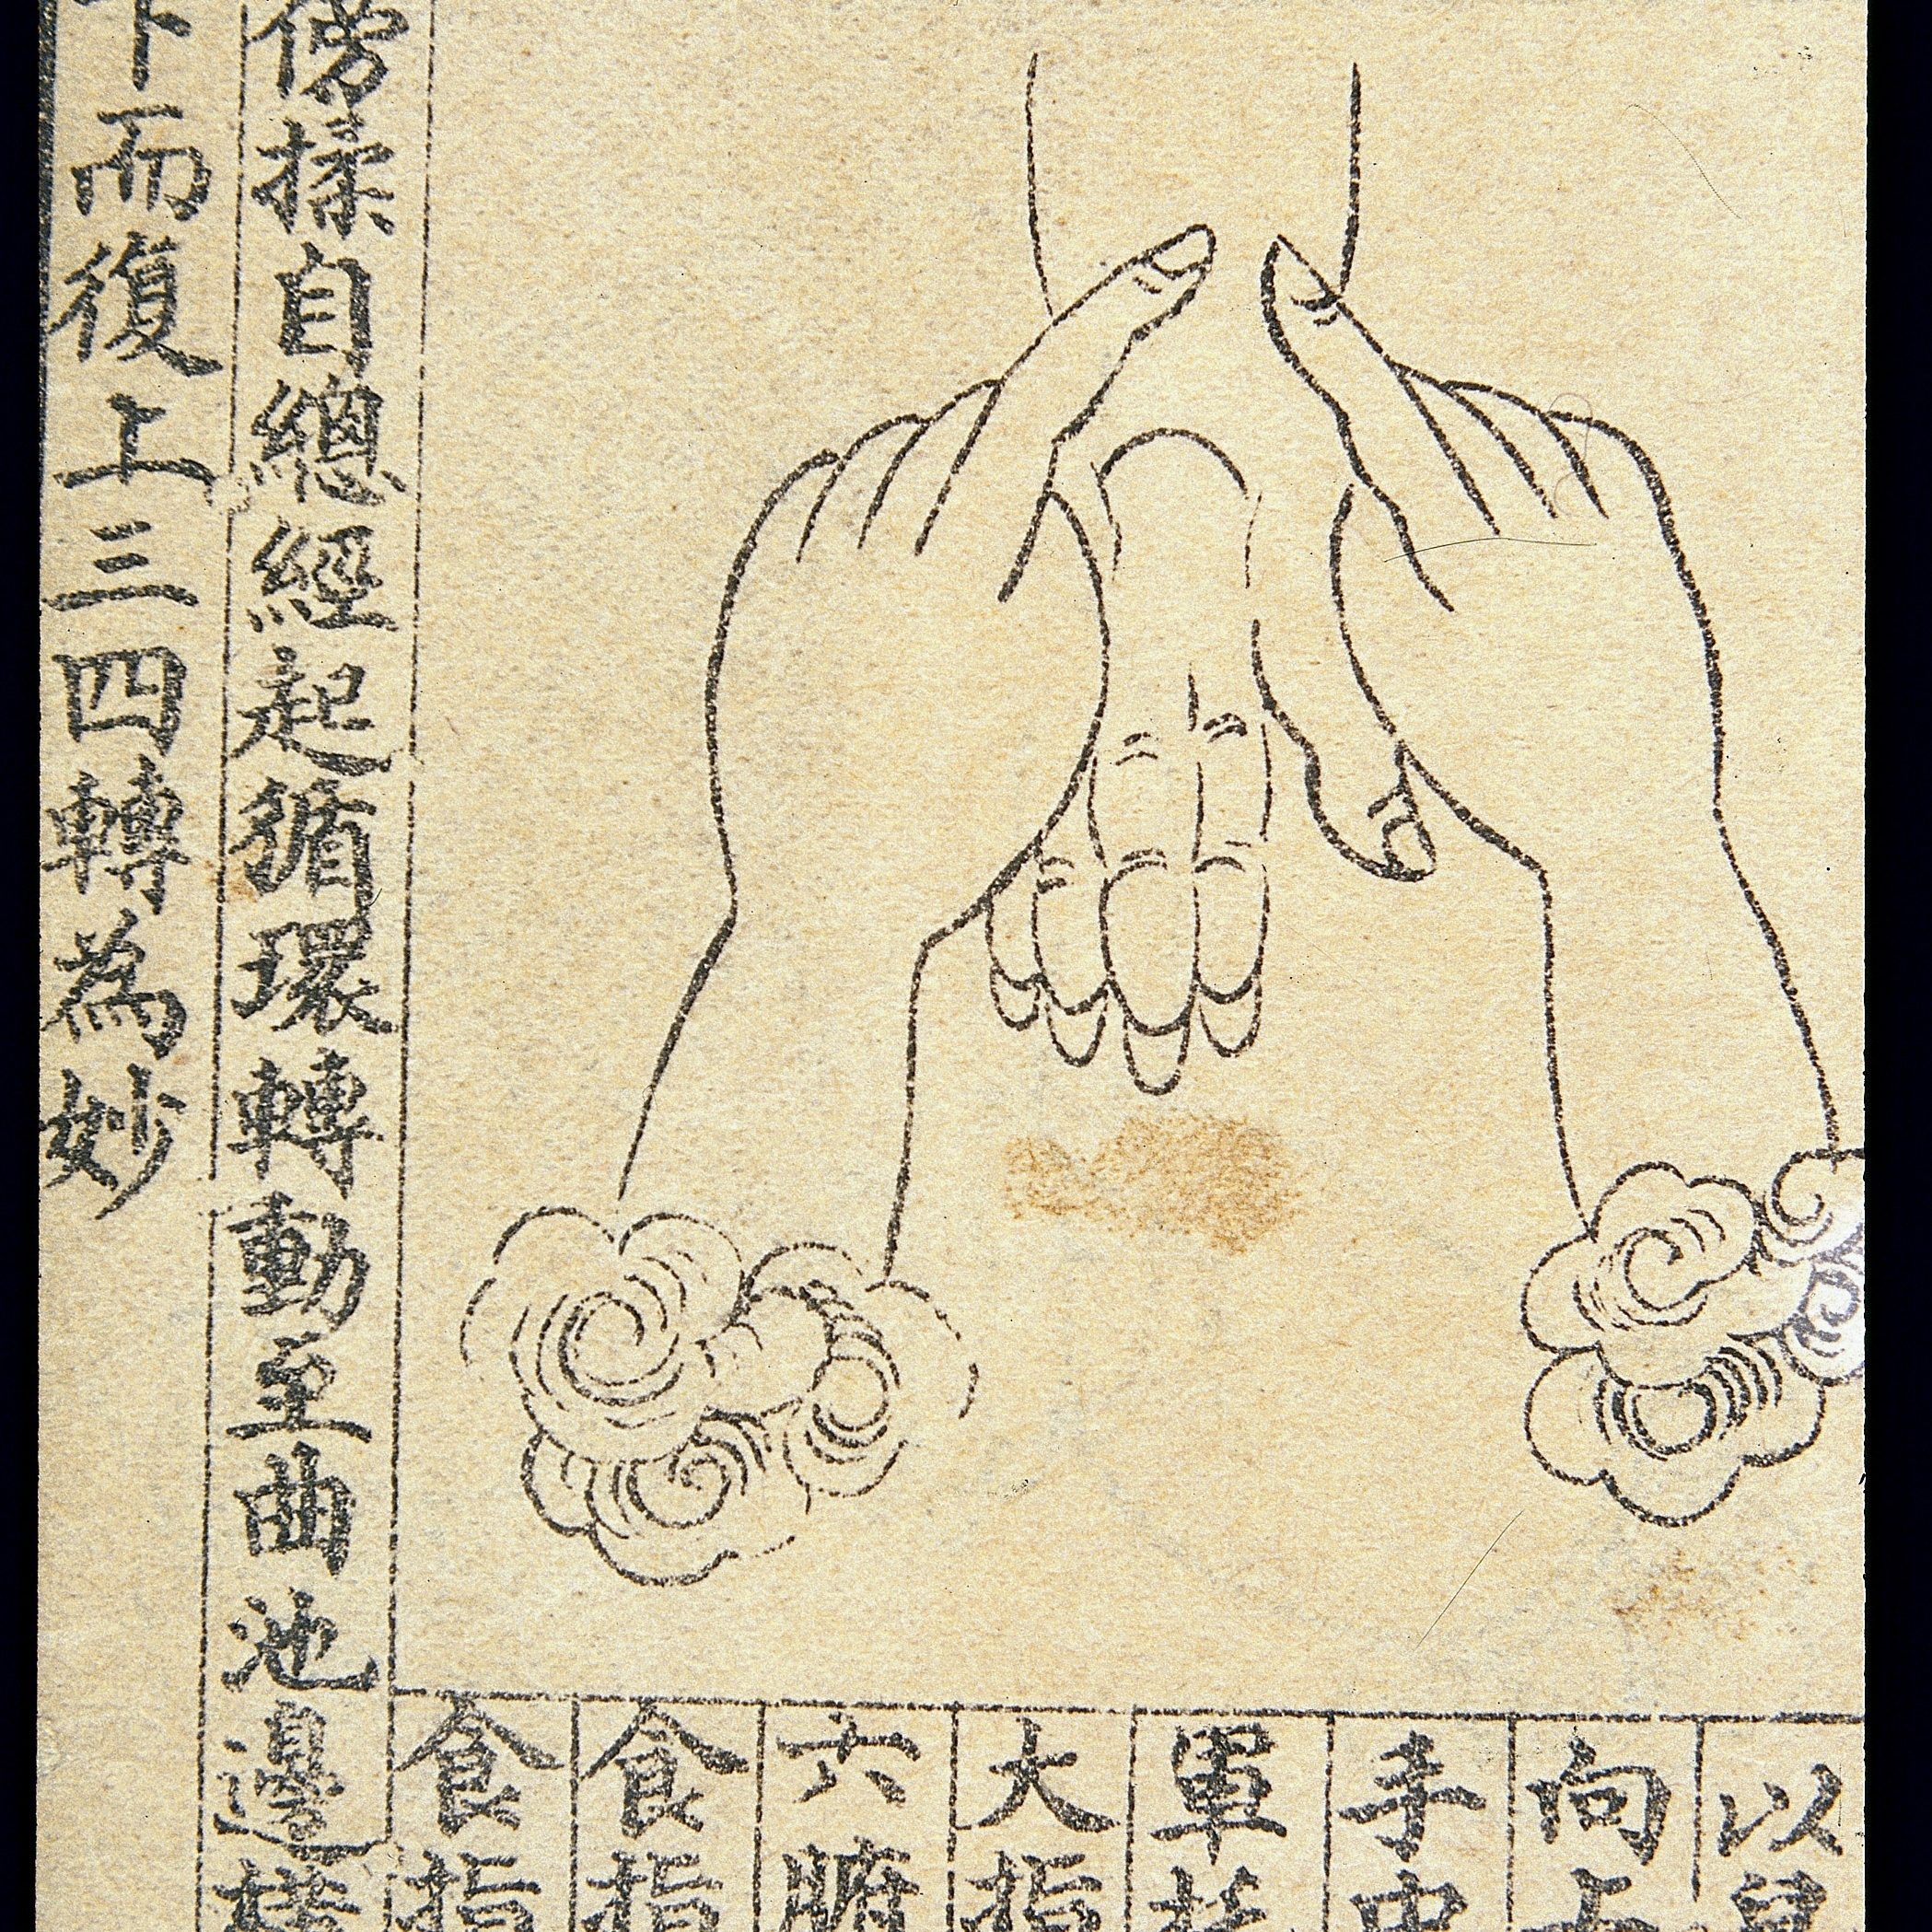 以兒
向上
中
軍
大指
六腑
食指
食指
傍揉自總經起循環轉動至曲池邊橫
下而復上三四轉為妙